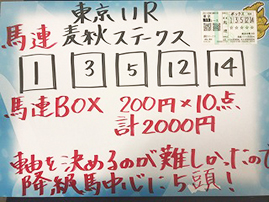 東京11R
馬連 麦秋ステークス
1 3 5 12 14
馬連BOX 200円×10点
計2000円
軸を決めるのが難しかったので
降級馬中心に5頭!